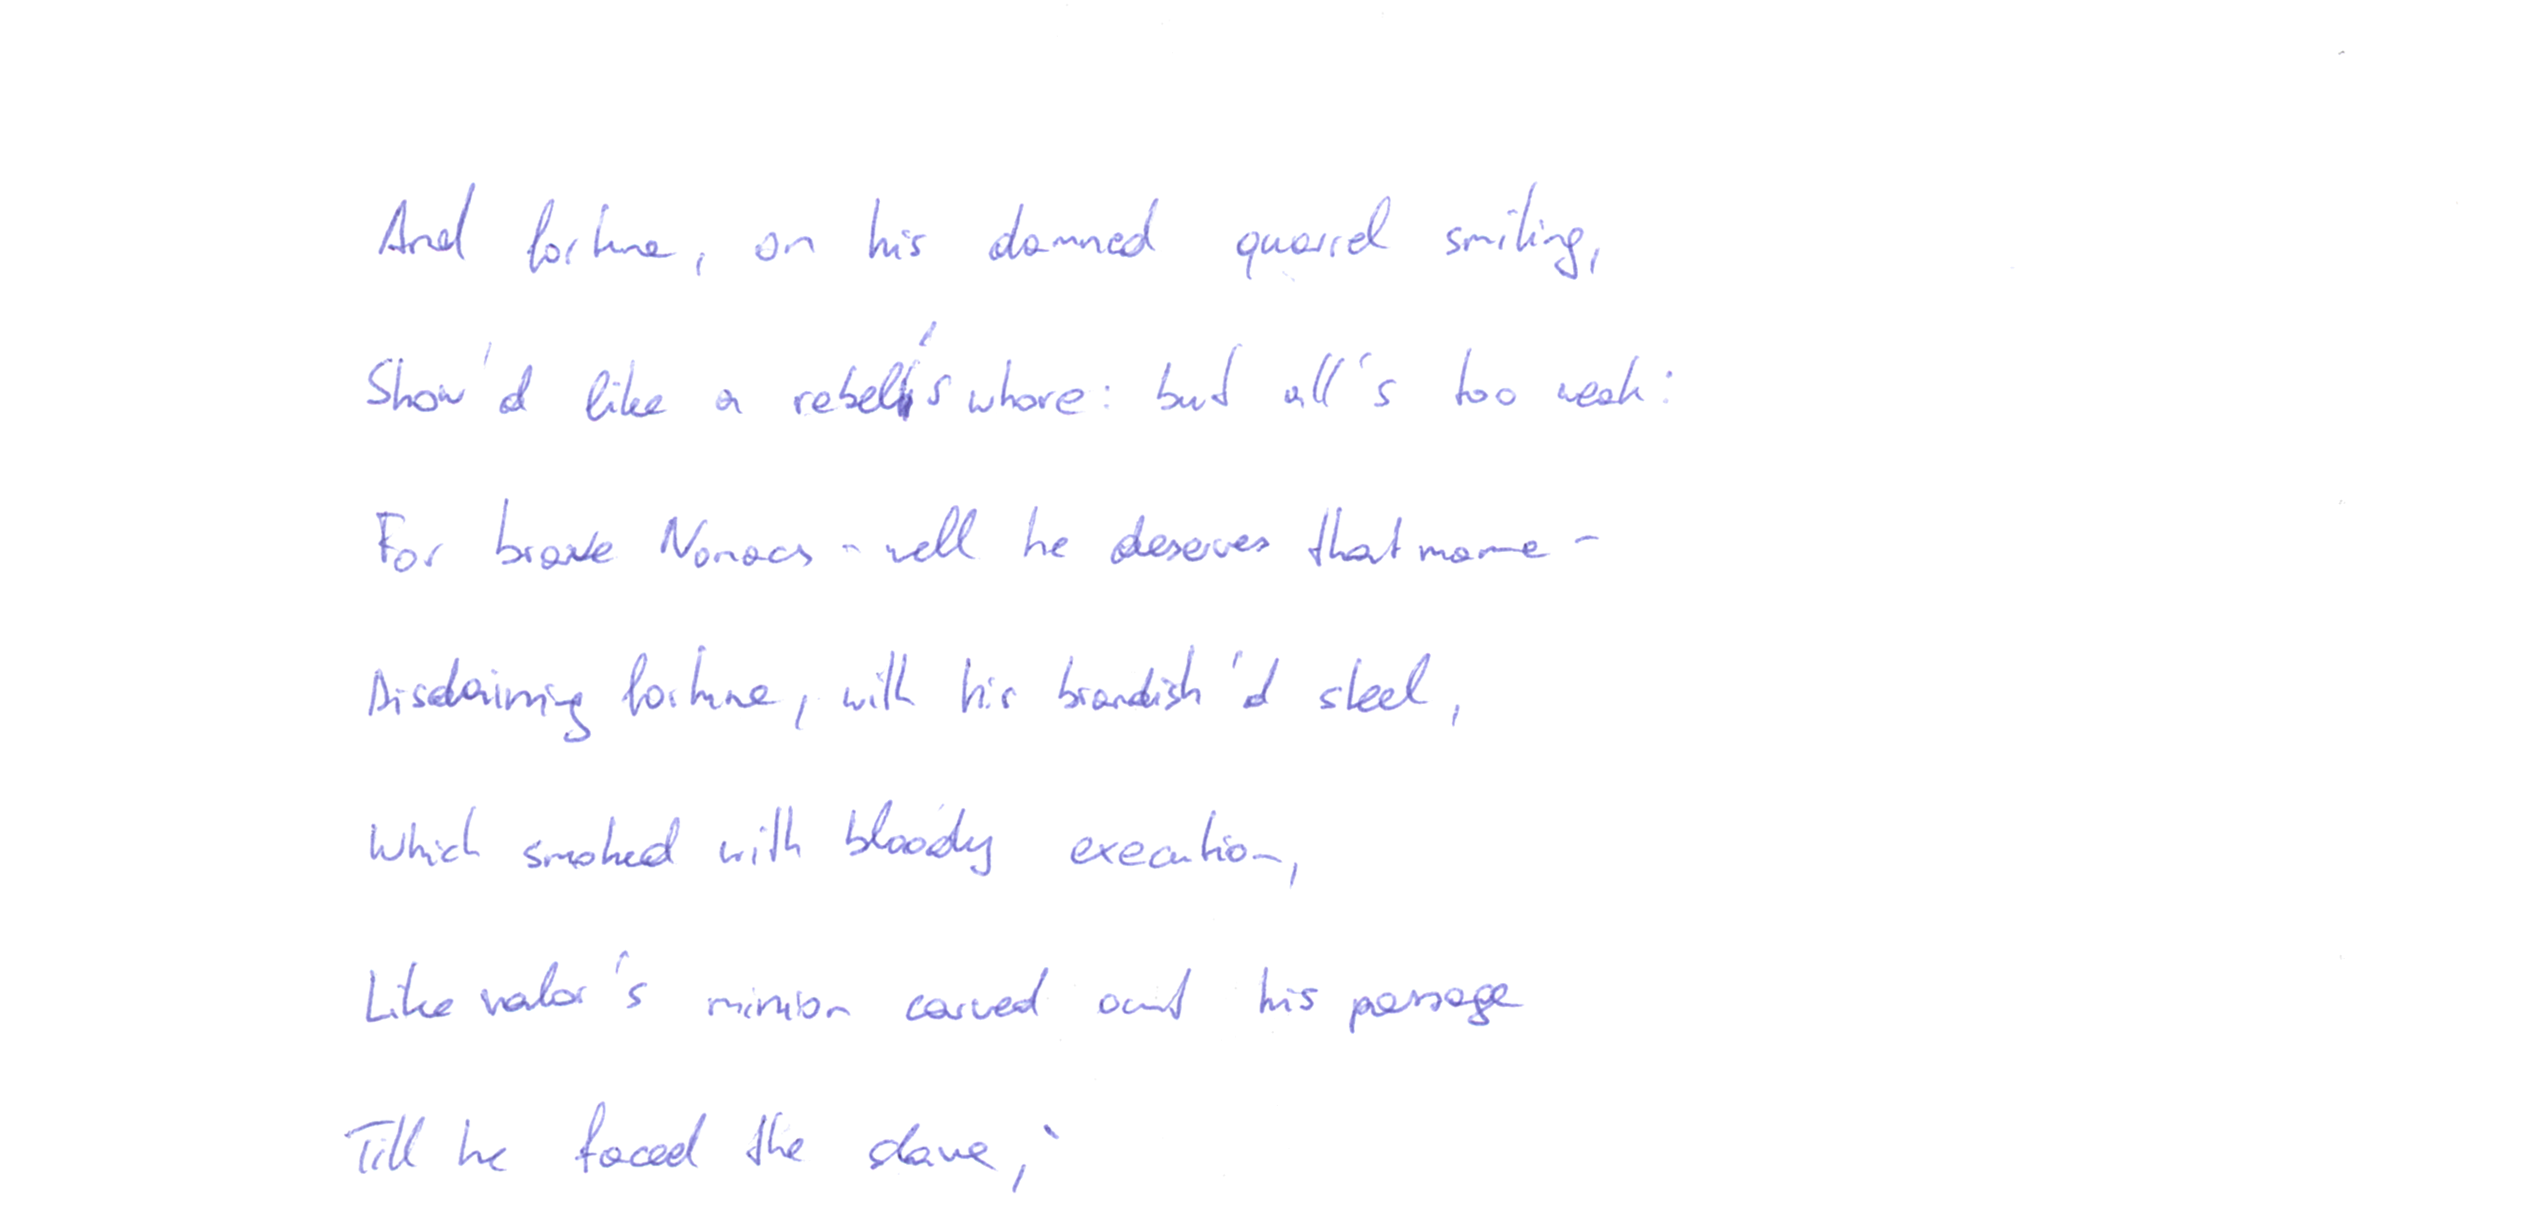 And fortune, on his damned quarrel smiling,
Show'd like a rebell's whore: but all's too weak:
For brave Nonacs - well he deserves that name -
Disdaining fortune, with his brandish'd steel,
Which smoked with bloody execution,
Like valor's minion carved out his passage
Till he faced the slave;